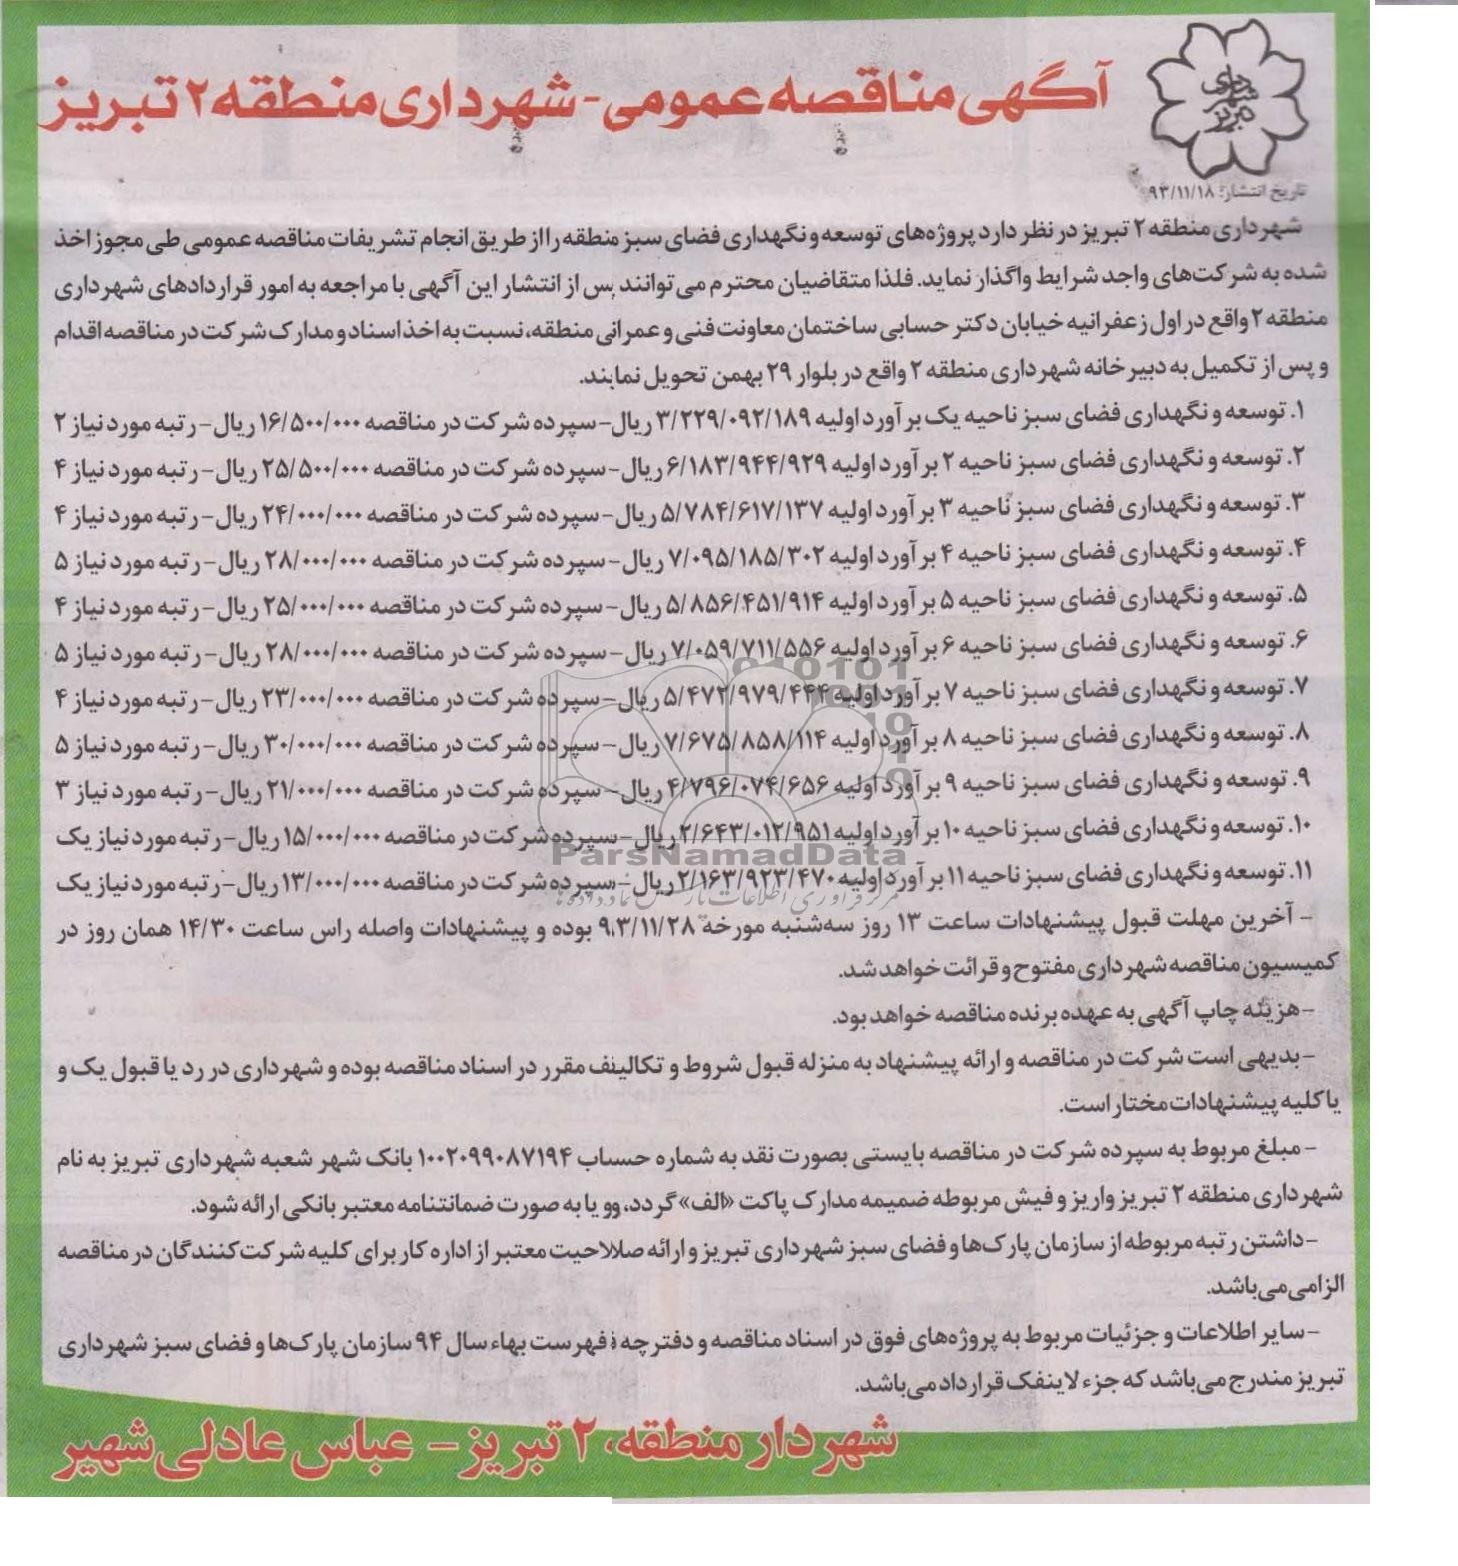 شهرداری تبریز
آگهی مناقصه عمومی - شهرداری منطقه ۲ تبریز
تاریخ انتشار: ۹۳/۱۱/۱۸
شهرداری منطقه ۲ تبریز در نظر دارد پروژه‌های توسعه و نگهداری فضای سبز منطقه را از طریق انجام تشریفات مناقصه عمومی طی مجوز اخذ
شده به شرکت‌های واجد شرایط واگذار نماید. فلذا متقاضیان محترم می‌توانند پس از انتشار این آگهی با مراجعه به امور قراردادهای شهرداری
منطقه ۲ واقع در اول زعفرانیه خیابان دکتر حسابی ساختمان معاونت فنی و عمرانی منطقه، نسبت به اخذ اسناد و مدارک شرکت در مناقصه اقدام
و پس از تکمیل به دبیرخانه شهرداری منطقه ۲ واقع در بلوار ۲۹ بهمن تحویل نمایند.
۱. توسعه و نگهداری فضای سبز ناحیه یک برآورد اولیه ۳/۲۲۹/۰۹۲/۱۸۹ ریال- سپرده شرکت در مناقصه ۱۶/۵۰۰/۰۰۰ ریال- رتبه مورد نیاز ۲
۲. توسعه و نگهداری فضای سبز ناحیه ۲ برآورد اولیه ۶/۱۸۳/۹۴۴/۹۲۹ ریال- سپرده شرکت در مناقصه ۲۵/۵۰۰/۰۰۰ ریال- رتبه مورد نیاز ۴
۳. توسعه و نگهداری فضای سبز ناحیه ۳ برآورد اولیه ۵/۷۸۴/۶۱۷/۱۳۷ ریال- سپرده شرکت در مناقصه ۲۴/۰۰۰/۰۰۰ ریال- رتبه مورد نیاز ۴
۴. توسعه و نگهداری فضای سبز ناحیه ۴ برآورد اولیه ۷/۰۹۵/۱۸۵/۳۰۲ ریال- سپرده شرکت در مناقصه ۲۸/۰۰۰/۰۰۰ ریال- رتبه مورد نیاز ۵
۵. توسعه و نگهداری فضای سبز ناحیه ۵ برآورد اولیه ۵/۸۵۶/۴۵۱/۹۱۴ ریال- سپرده شرکت در مناقصه ۲۵/۰۰۰/۰۰۰ ریال- رتبه مورد نیاز ۴
۶. توسعه و نگهداری فضای سبز ناحیه ۶ برآورد اولیه ۷/۰۵۹/۷۱۱/۵۵۶ ریال- سپرده شرکت در مناقصه ۲۸/۰۰۰/۰۰۰ ریال- رتبه مورد نیاز ۵
۷. توسعه و نگهداری فضای سبز ناحیه ۷ برآورد اولیه ۵/۴۷۲/۹۷۹/۴۴۴ ریال- سپرده شرکت در مناقصه ۲۳/۰۰۰/۰۰۰ ریال- رتبه مورد نیاز ۴
۸. توسعه و نگهداری فضای سبز ناحیه ۸ برآورد اولیه ۷/۶۷۵/۸۵۸/۱۱۴ ریال- سپرده شرکت در مناقصه ۳۰/۰۰۰/۰۰۰ ریال- رتبه مورد نیاز ۵
۹. توسعه و نگهداری فضای سبز ناحیه ۹ برآورد اولیه ۴/۷۹۶/۰۷۴/۶۵۶ ریال- سپرده شرکت در مناقصه ۲۱/۰۰۰/۰۰۰ ریال- رتبه مورد نیاز ۳
۱۰. توسعه و نگهداری فضای سبز ناحیه ۱۰ برآورد اولیه ۲/۶۴۳/۰۱۲/۹۵۱ ریال- سپرده شرکت در مناقصه ۱۵/۰۰۰/۰۰۰ ریال- رتبه مورد نیاز یک
۱۱. توسعه و نگهداری فضای سبز ناحیه ۱۱ برآورد اولیه ۲/۱۶۳/۹۲۳/۴۷۰ ریال- سپرده شرکت در مناقصه ۱۳/۰۰۰/۰۰۰ ریال- رتبه مورد نیاز یک
- آخرین مهلت قبول پیشنهادات ساعت ۱۳ روز سه‌شنبه مورخه ۹۳/۱۱/۲۸ بوده و پیشنهادات واصله راس ساعت ۱۴/۳۰ همان روز در
کمیسیون مناقصه شهرداری مفتوح و قرائت خواهد شد.
- هزینه چاپ آگهی به عهده برنده مناقصه خواهد بود.
- بدیهی است شرکت در مناقصه و ارائه پیشنهاد به منزله قبول شروط و تکالیف مقرر در اسناد مناقصه بوده و شهرداری در رد یا قبول یک و
یا کلیه پیشنهادات مختار است.
- مبلغ مربوط به سپرده شرکت در مناقصه بایستی بصورت نقد به شماره حساب ۱۰۰۲۰۹۹۰۸۷۱۹۴ بانک شهر شعبه شهرداری تبریز به نام
شهرداری منطقه ۲ تبریز واریز و فیش مربوطه ضمیمه مدارک پاکت «الف» گردد، و یا به صورت ضمانتنامه معتبر بانکی ارائه شود.
- داشتن رتبه مربوطه از سازمان پارک‌ها و فضای سبز شهرداری تبریز و ارائه صلاحیت معتبر از اداره کار برای کلیه شرکت‌کنندگان در مناقصه
الزامی می‌باشد.
- سایر اطلاعات و جزئیات مربوط به پروژه‌های فوق در اسناد مناقصه و دفترچه فهرست بهاء سال ۹۴ سازمان پارک‌ها و فضای سبز شهرداری
تبریز مندرج می‌باشد که جزء لاینفک قرارداد می‌باشد.
شهردار منطقه ۲ تبریز - عباس عادلی شهیر
ParsNamadData
مرکز فرآوری اطلاعات پارس نماد داده‌ها